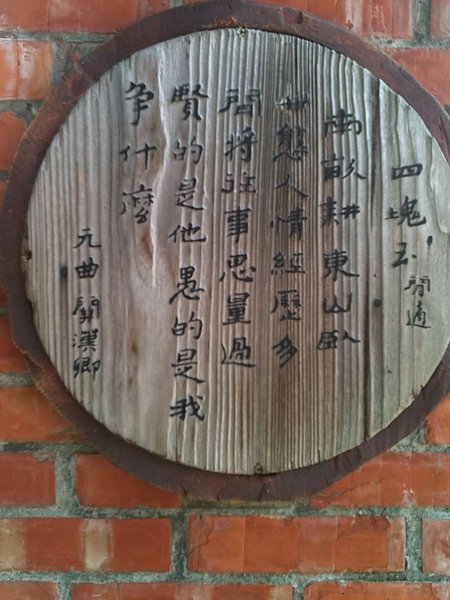 四塊玉 閒適
南畝耕東山臥
世態人情經歷多
閒將往事思量過
賢的是他愚的是我
争什麼
元曲 關漢卿